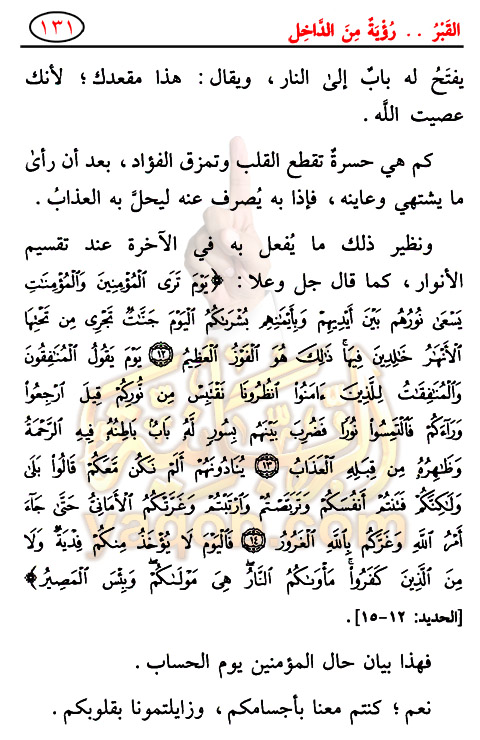 القَبْرُ .. رُؤْيَةٌ مِنَ الدَّاخِلِ ١٣١
يفتَحُ له بابٌ إلىٰ النار، ويقال: هذا مقعدك؛ لأنك
عصيت اللَّه.
كم هي حسرةٌ تقطع القلب وتمزق الفؤاد، بعد أن رأىٰ
ما يشتهي وعاينه، فإذا به يُصرف عنه ليحلَّ به العذابُ.
ونظير ذلك ما يُفعل به في الآخرة عند تقسيم
الأنوار، كما قال جل وعلا: ﴿يَوْمَ تَرَى ٱلْمُؤْمِنِينَ وَٱلْمُؤْمِنَٰتِ
يَسْعَىٰ نُورُهُم بَيْنَ أَيْدِيهِمْ وَبِأَيْمَٰنِهِم بُشْرَىٰكُمُ ٱلْيَوْمَ جَنَّٰتٌ تَجْرِى مِن تَحْتِهَا
ٱلْأَنْهَٰرُ خَٰلِدِينَ فِيهَا ۚ ذَٰلِكَ هُوَ ٱلْفَوْزُ ٱلْعَظِيمُ ۝١٢ يَوْمَ يَقُولُ ٱلْمُنَٰفِقُونَ
وَٱلْمُنَٰفِقَٰتُ لِلَّذِينَ ءَامَنُوا۟ ٱنظُرُونَا نَقْتَبِسْ مِن نُّورِكُمْ قِيلَ ٱرْجِعُوا۟
وَرَآءَكُمْ فَٱلْتَمِسُوا۟ نُورًا فَضُرِبَ بَيْنَهُم بِسُورٍ لَّهُۥ بَابٌۢ بَاطِنُهُۥ فِيهِ ٱلرَّحْمَةُ
وَظَٰهِرُهُۥ مِن قِبَلِهِ ٱلْعَذَابُ ۝١٣ يُنَادُونَهُمْ أَلَمْ نَكُن مَّعَكُمْ ۖ قَالُوا۟ بَلَىٰ
وَلَٰكِنَّكُمْ فَتَنتُمْ أَنفُسَكُمْ وَتَرَبَّصْتُمْ وَٱرْتَبْتُمْ وَغَرَّتْكُمُ ٱلْأَمَانِىُّ حَتَّىٰ جَآءَ
أَمْرُ ٱللَّهِ وَغَرَّكُم بِٱللَّهِ ٱلْغَرُورُ ۝١٤ فَٱلْيَوْمَ لَا يُؤْخَذُ مِنكُمْ فِدْيَةٌ وَلَا
مِنَ ٱلَّذِينَ كَفَرُوا۟ ۚ مَأْوَىٰكُمُ ٱلنَّارُ ۖ هِىَ مَوْلَىٰكُمْ ۖ وَبِئْسَ ٱلْمَصِيرُ﴾
[الحديد: ١٢-١٥].
فهذا بيان حال المؤمنين يوم الحساب.
نعم؛ كنتم معنا بأجسامكم، وزايلتمونا بقلوبكم.